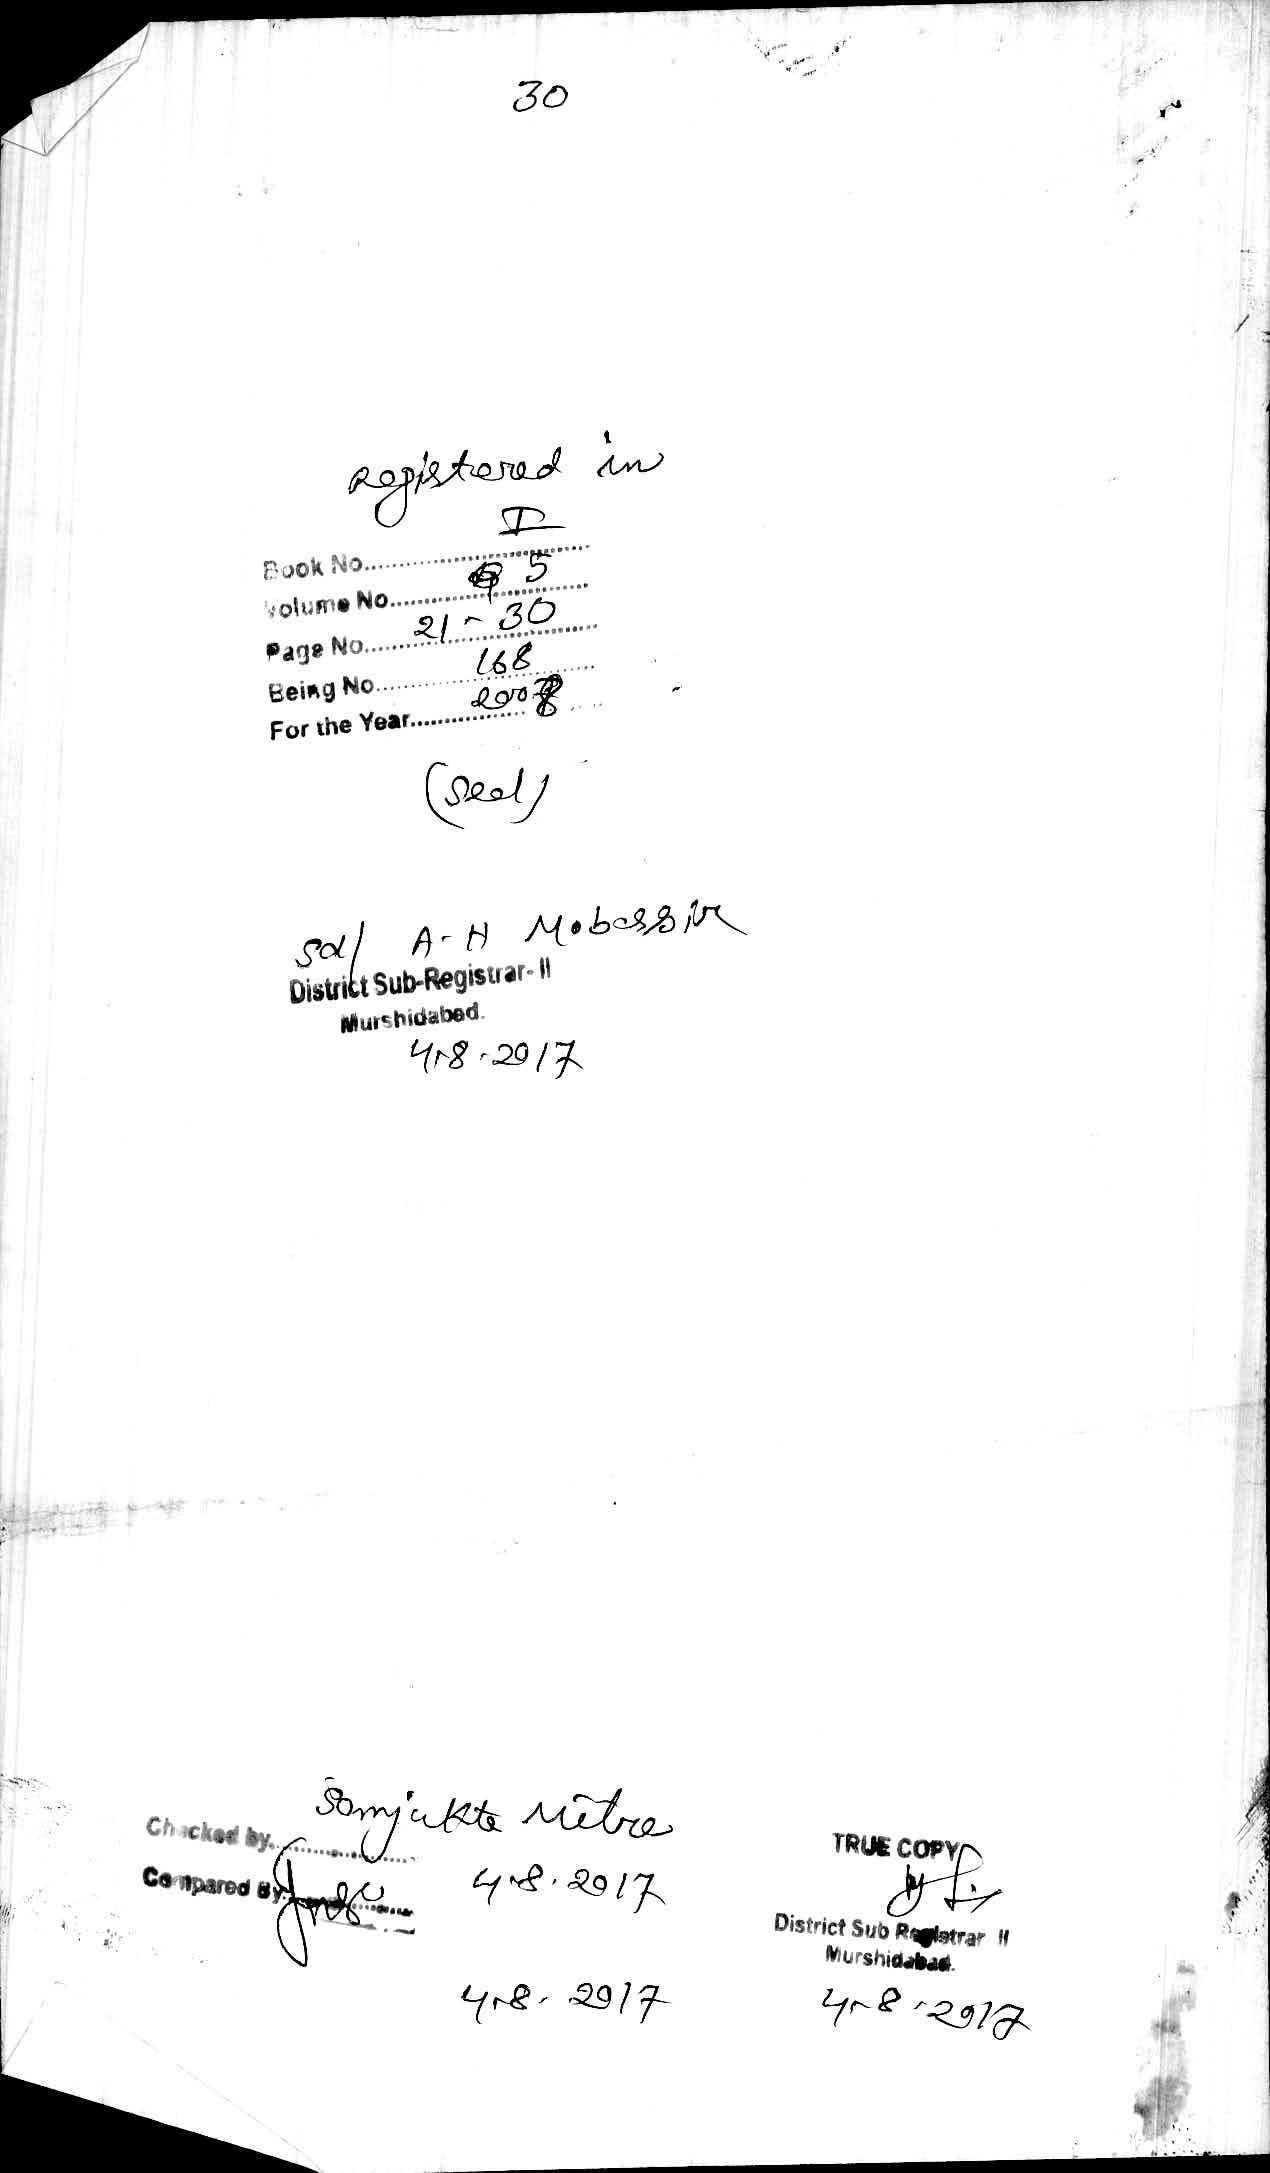 30
registered in
Book No. I
Volume No. 5
Page No. 21 - 30
Being No. 168
For the Year 2008
(Seal)
sd/ A-H Mobassir
District Sub-Registrar- II
Murshidabad.
4.8.2017
Checked by. Samjukta Mitra
4.8.2017
Compared By.
4.8.2017
TRUE COPY
District Sub Registrar II
Murshidabad.
4.8.2017